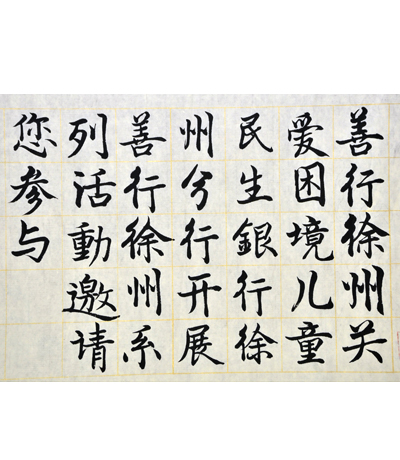 善行徐州关
爱困境儿童
民生銀行徐
州分行开展
善行徐州系
列活動邀请
您参与